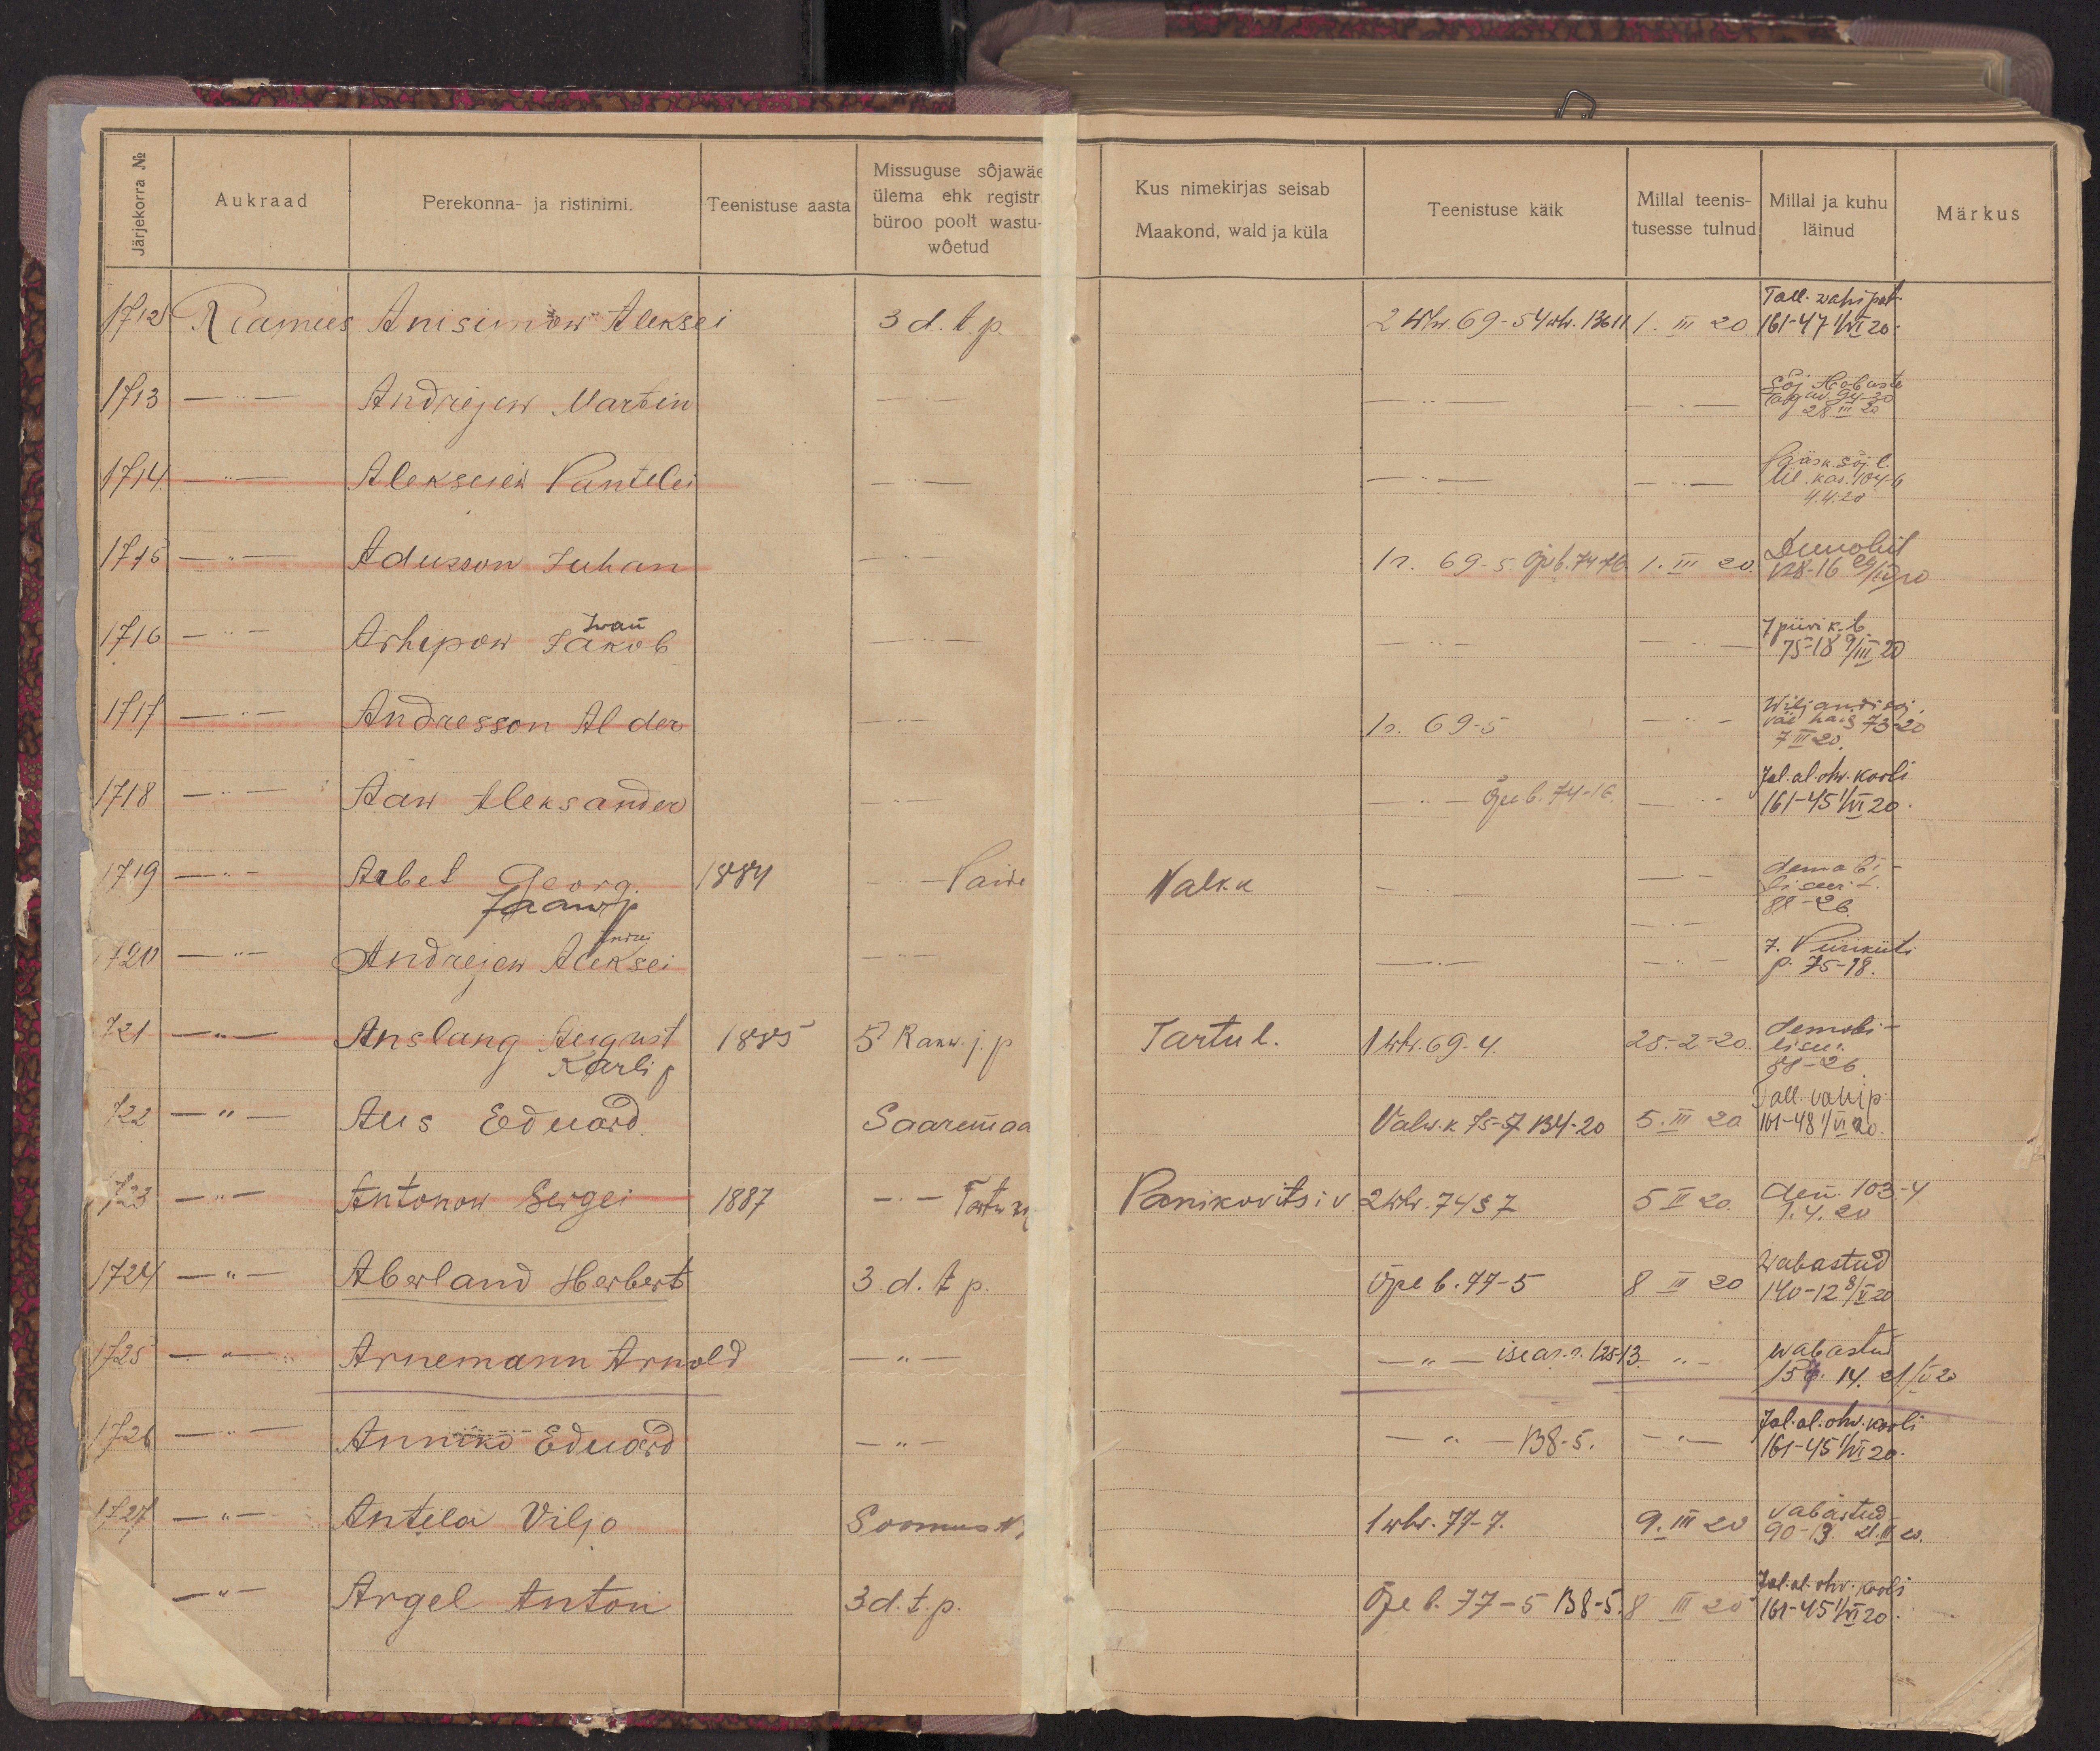 Järjekorra № Aukraad Perekonna- ja ristinimi. Teenistuse aasta Missuguse sõjawäe ülema ehk registr büroo poolt wastu- wõetud Kus nimekirjas seisab Maakond, wald ja küla Teenistuse käik Millal teenis- tusesse tulnud Millal ja kuhu läinud Märkus
1712 Reamees Anisimow Aleksei 3 d. t. p. 2 whr. 69-5 4 whr. 136 11 1. III 20. Tall. wahipat. 161-47 1/VI 20.
1713 —"— Andrejew Martin —"— —"— —"— Sõj. Hobuste 94-30 28 III 20
1714. —"— Alekseiew Pantelei —"— —"— —"— sõj. l. ül. kas. 104-6 4.4.20
1715 —"— Adusson Juhan —"— 1 r. 69-5. Õpe b. 74 16 1. III 20. Demobil 128-16 29/IV 20
1716 —"— Arhipow Jakob Iwan —"— —"— —"— 7 püri k. b 75-18 9/III 20
1717 —"— Andresson Al-der —"— 1 r. 69-5 —"— Wiljandi sõj. väe haig 73-20 7 III 20.
1718 —"— Aaw Aleksander —"— —"— Õpe b. 74-16. —"— Jal. al. ohv. kooli 161-45 1/VI 20.
1719 —"— Arbet Georg. Jaani p 1884 —"— Paide Valk.k —"— —"— demobi- liseerit. 88-26.
1720 —"— Andrejew Aleksei Andrei —"— —"— —"— 7. Püriküti p. 75-18.
721 —"— Anslang August Karli p 1885 5 Rakw. j. p Tartu l. 1 whr. 69-4. 28.-2-20. demobi- liseer. 88-26.
722 —"— Aus Eduard. Saaremaa Valw.k 75-57 134-20 5. III 20 Tall. vahip. 161-48 1/VI 20.
723 —"— Antonow Sergei 1887 —"— Tartu Panikovitsi v. 2 whr. 74 § 7 5 III 20. dem. 103-4 1.4.20
1724 —"— Aberland Herbert 3 d. t p. Õpe b. 77-5 8 III 20 Wabastud 140-12 8/V 20
1725 —"— Arnemann Arnold —"— —"— isear. r. 125-13. —"— wabastud 14. 21/V 20
1726 —"— Anniko Eduard —"— —"— 138-5. —"— Jal. al. ohv. kooli 161-45 1/VI 20.
1727 —"— Antela Viljo Soomus 1 whr. 77-7. 9. III 20 vabastud 90-13. 21.III 20.
—"— Argel Anton 3 d. t. p. Õpe b. 77-5 138-5. 8 III 20 Jal. al. ohv. kooli 161-45 1/VI 20.